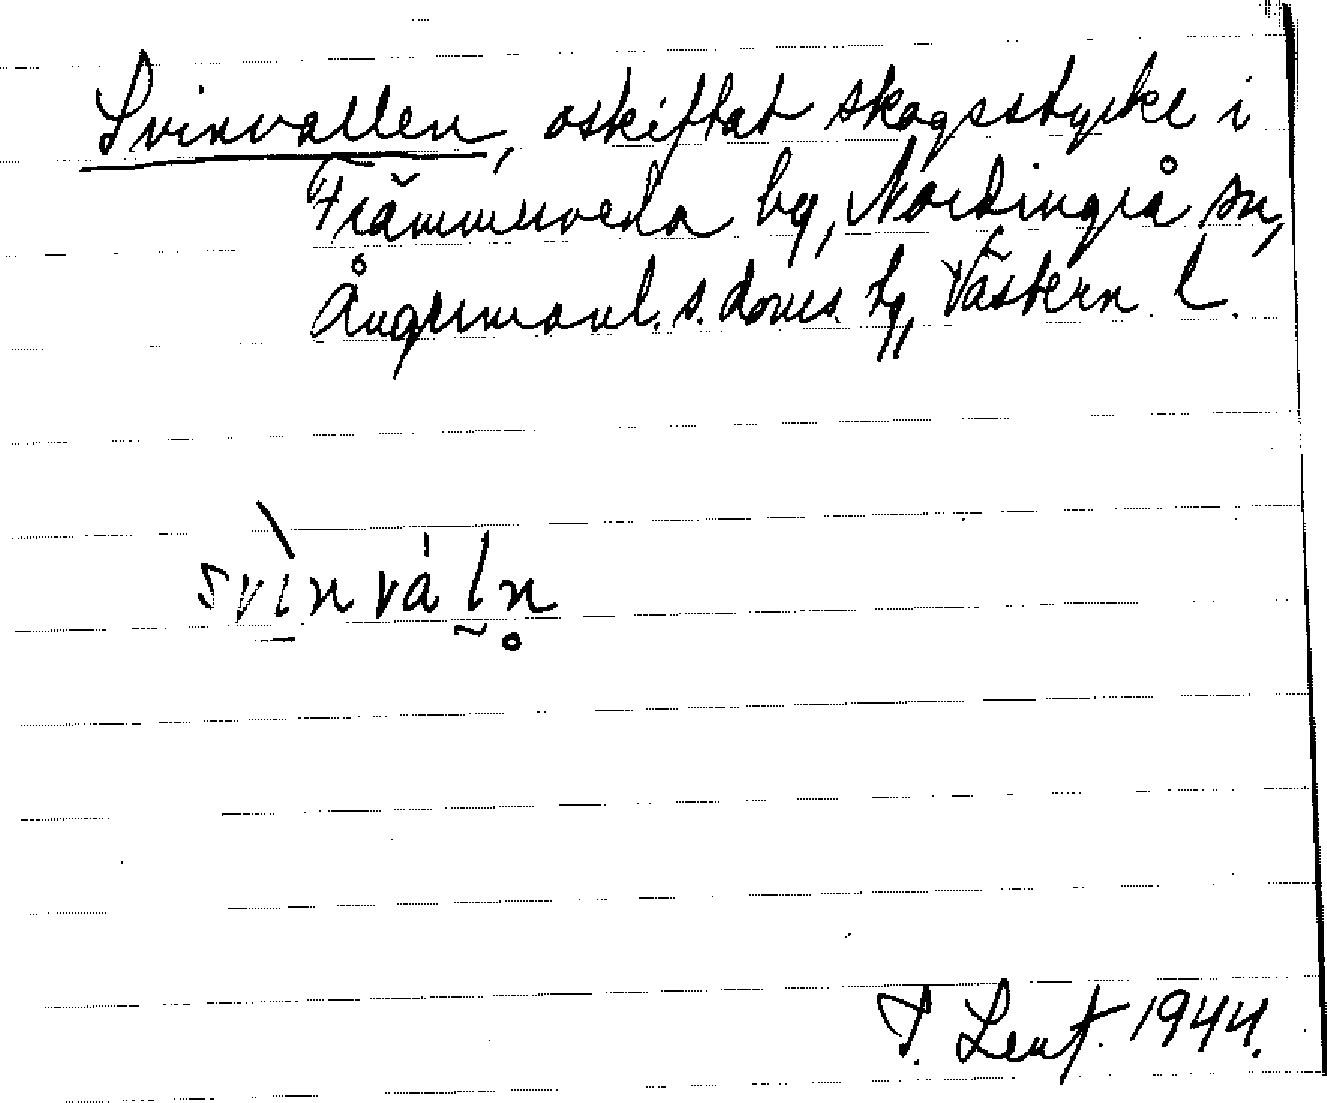 Svinvallen, oskiftat skogsstycke i
Främmerveda by, Nordingrå sn,
Ångermanl. s. doms. tg, Västern. l.
svìnvàl̰n̥
T. Lenf. 1944.